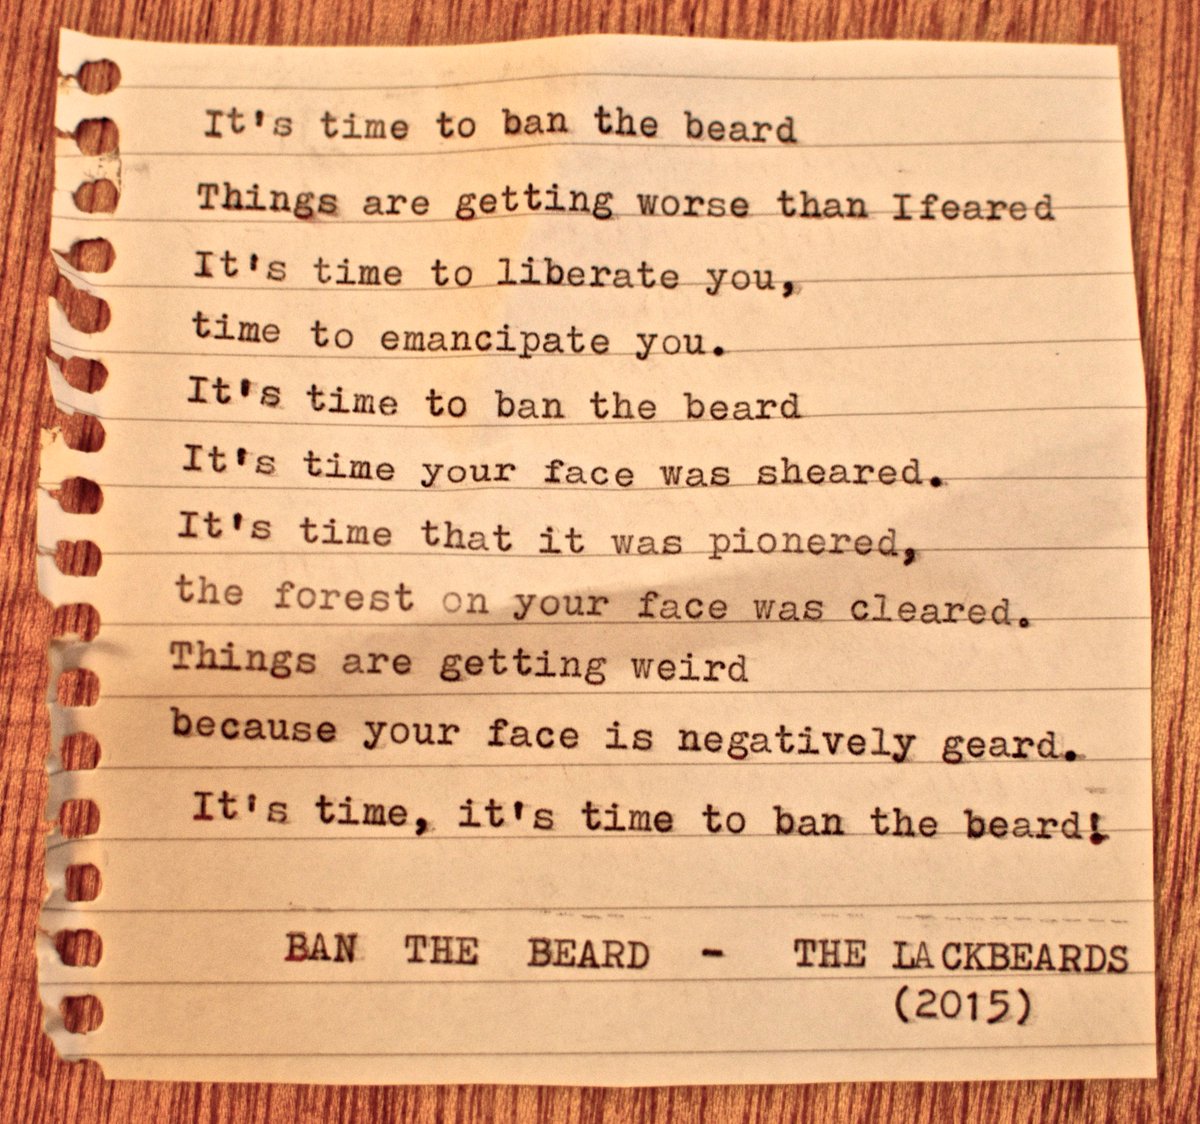 It's time to ban the beard
Things are getting worse than Ifeared
It's time to liberate you,
time to emancipate you.
It's time to ban the beard
It's time your face was sheared.
It's time that it was pionered,
the forest on your face was cleared.
Things are getting weird
because your face is negatively geard.
It's time, it's time to ban the beard!
BAN THE BEARD - THE LACKBEARDS
(2015)